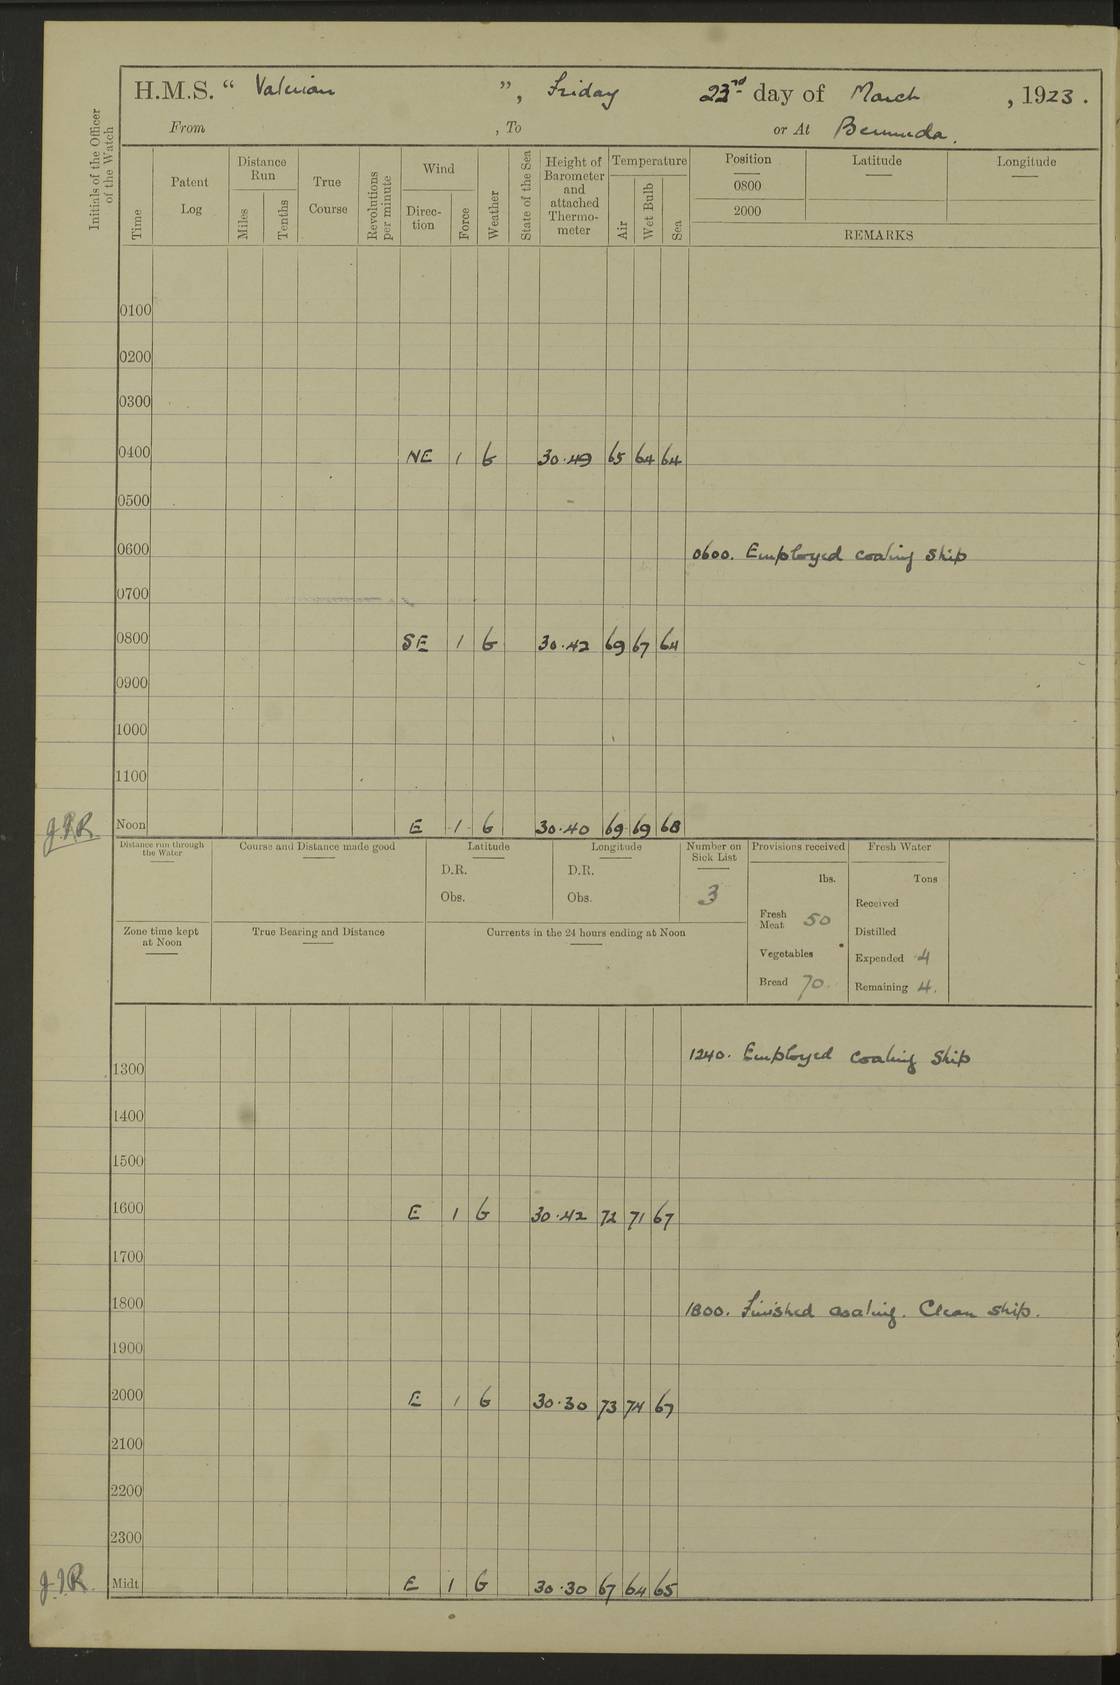 H.M.S. “ Valerian ”, Friday 23rd day of March , 1923 .
From , To or At Bermuda.
Initials of the Officer of the Watch
Time
Patent Log
Distance Run
Miles
Tenths
True Course
Revolutions per minute
Wind
Direc-tion
Force
Weather
State of the Sea
Height of Barometer and attached Thermo-meter
Temperature
Air
Wet Bulb
Sea
Position Latitude Longitude
0800
2000
REMARKS
0100
0200
0300
0400 NE 1 G 30.49 65 64 64
0500
0600 0600. Employed coaling ship
0700
0800 SE 1 G 30.42 69 67 64
0900
1000
1100
Noon E 1 G 30.40 69 69 68
Distance run through the Water
Course and Distance made good
Latitude
D.R.
Obs.
Longitude
D.R.
Obs.
Number on Sick List
3
Provisions received
lbs.
Fresh Meat 50
Vegetables
Bread 70.
Fresh Water
Tons
Received
Distilled
Expended 4
Remaining 4.
Zone time kept at Noon
True Bearing and Distance
Currents in the 24 hours ending at Noon
1240. Employed coaling ship
1300
1400
1500
1600 E 1 G 30.42 72 71 67
1700
1800 1800. Finished coaling. Clean ship.
1900
2000 E 1 G 30.30 73 74 67
2100
2200
2300
J.I.R. Midt E 1 G 30.30 67 64 65